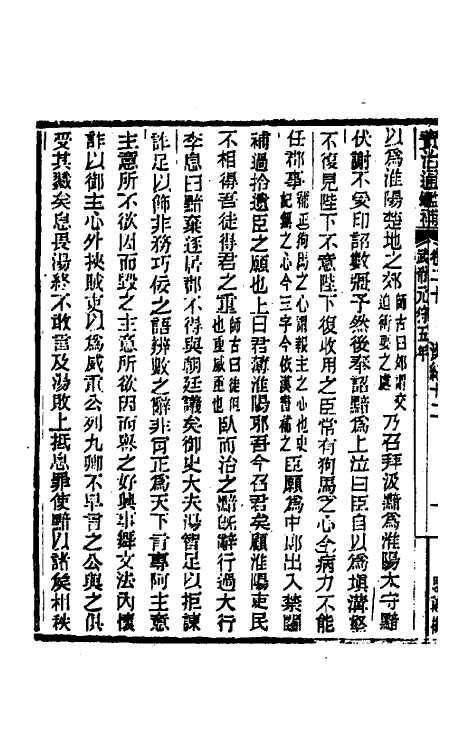 資治通鑑補 卷二十 漢紀十二
武帝元狩五年
以爲淮陽楚地之郊師古曰郊謂交迫衝要之處乃召拜汲黯爲淮陽太守黯
伏謝不受印詔數彊予然後奉詔黯爲上泣曰臣自以爲塡溝壑
不復見陛下不意陛下復收用之臣常有狗馬之心今病力不能
任郡事補正狗馬之心謂報主之心也史記無之心今三字今依漢書補之臣願爲中郞出入禁闥
補過拾遺臣之願也上曰君薄淮陽邪吾今召君矣顧淮陽吏民
不相得吾徒得君之重師古曰徒但也重威重也臥而治之黯旣辭行過大行
李息曰黯棄逐居郡不得與朝廷議矣御史大夫湯智足以拒諫
詐足以飾非務巧佞之語辨數之辭非肯正爲天下言專阿主意
主意所不欲因而毁之主意所欲因而譽之好興事舞文法內懷
詐以御主心外挾賊吏以爲威重公列九卿不早言之公與之俱
受其戮矣息畏湯終不敢言及湯敗上抵息罪使黯以諸矦相秩